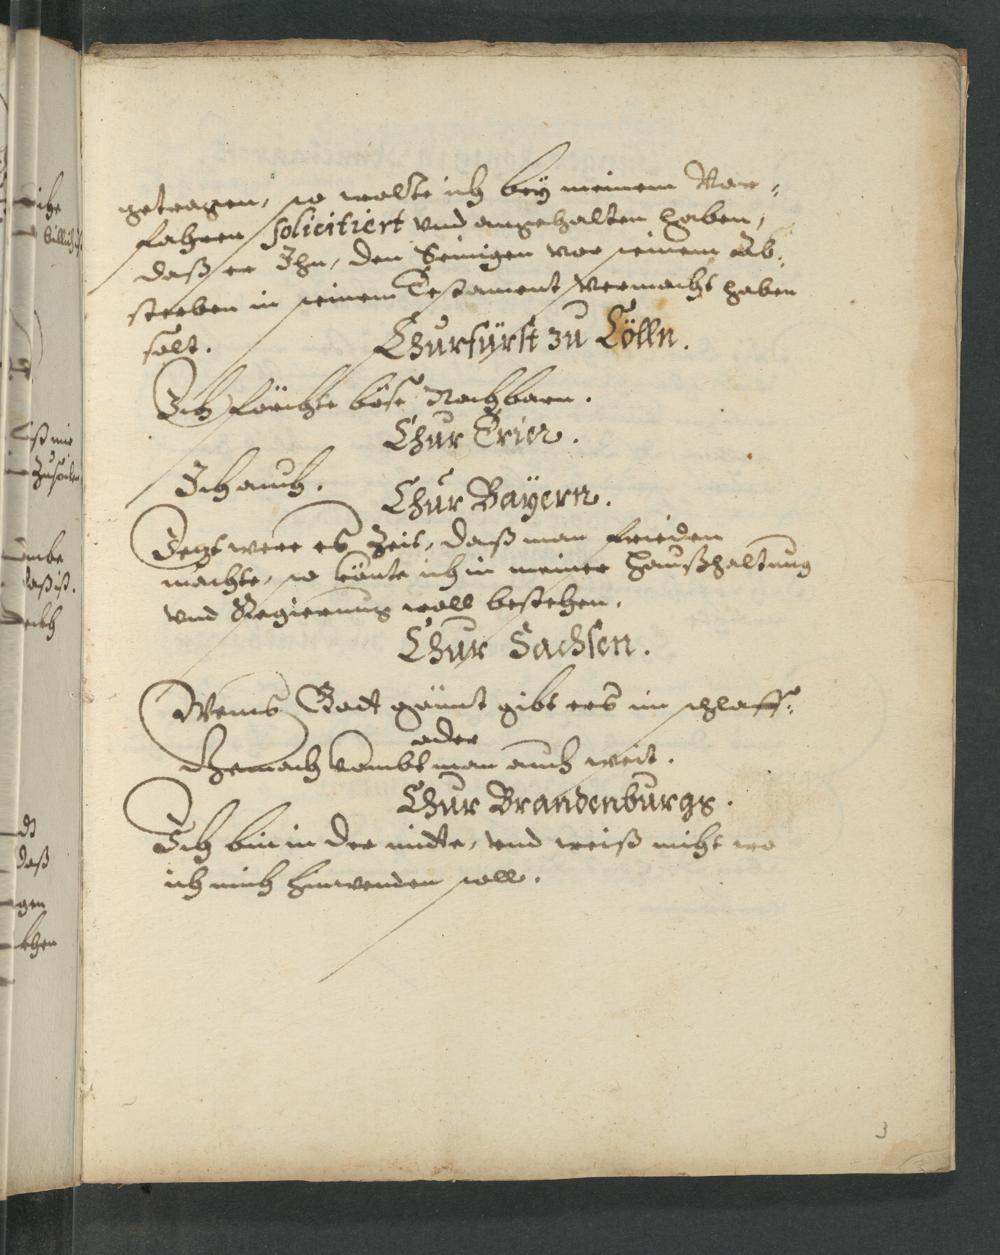 getragen, so wolte ich bey meinem Vor-
fahren solicitiert vnd angehalten haben,
daß er Ihn, den Seinigen vor seinem Ab-
sterben in seinem Testament vermacht haben
solt.
Churfürst zu Cölln.
Ich förchte böse Nachbarn.
Chur Trier.
Ich auch.
Chur Bayern.
Jetzt were es Zeit, daß man frieden
machte, so könte ich in meiner Haußhaltung
vnd Regierung woll bestehen.
Chur Sachsen.
Wems Gott gönnt gibt ers im schlaff.
oder
Gemach kombt man auch weit.
Chur Brandenburgs.
Ich bin in der mitte, vnd weiß nicht wo
ich mich hinwenden soll.
3